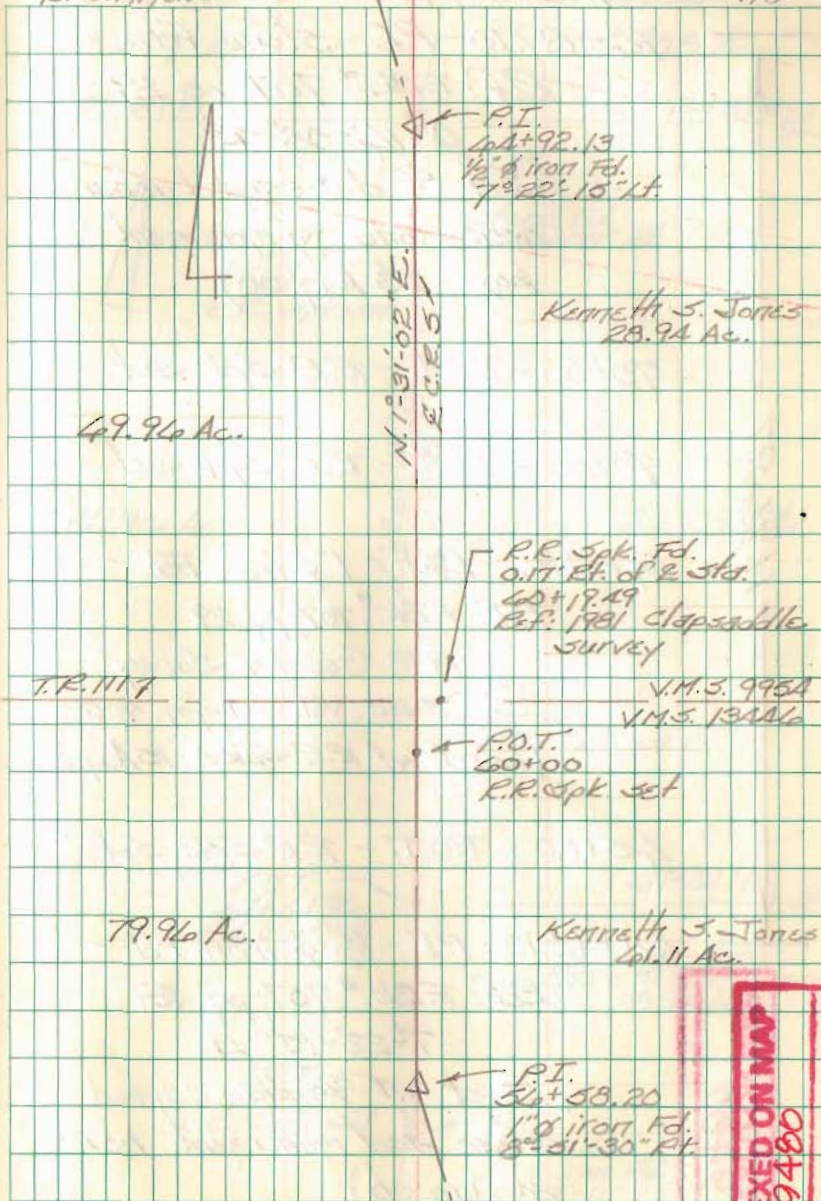 P.I.
64+92.13
1/2" ø iron Fd.
7°-22'-15" Lt.
N. 1°-31'-02" E.
℄ C.R. 51
Kenneth S. Jones
28.94 Ac.
69.96 Ac.
R.R. Spk. Fd.
0.17' Rt. of ℄ Sta.
60+19.49
Ref: 1981 Clapsaddle
survey
T.R. 1117
V.M.S. 9954
V.M.S. 13446
P.O.T.
60+00
R.R. Spk. set
79.96 Ac.
Kenneth S. Jones
61.11 Ac.
P.I.
56+58.20
1" ø iron Fd.
8°-51'-30" Rt.
XED ON MAP
9480